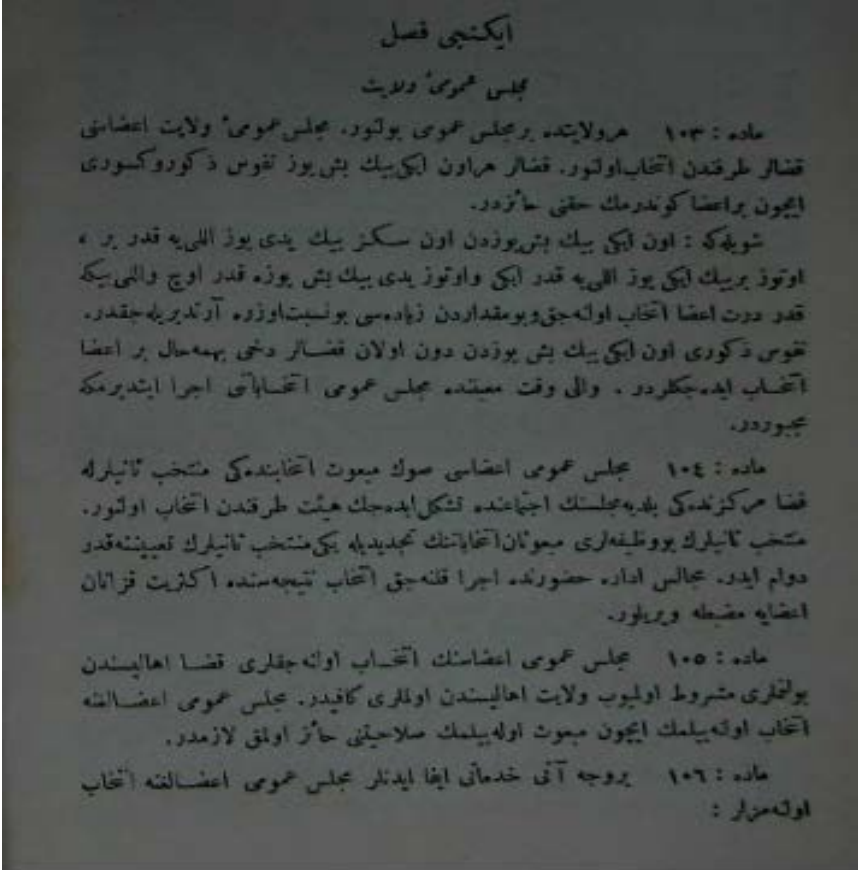 ایكنجی فصل
مجلس عمومیٔ ولایت
ماده : ۱۰۳ هر ولایتده بر مجلس عمومی بولنور. مجلس عمومیٔ ولایت اعضاسنی
قضالر طرفندن انتخاب اولنور. قضالر هر اون ایكی بیك بش یوز نفوس ذكور و كسوری
ایچون بر اعضا كوندرمك حقنی حائزدر.
شویله كه : اون ایكی بیك بش یوزدن اون سكز بیك یدی یوز اللی یه قدر بر ،
اوتوز بر بیك ایكی یوز اللی یه قدر ایكی و اوتوز یدی بیك بش یوزه قدر اوچ و اللی بیكه
قدر درت اعضا انتخاب اولنه جق و بو مقداردن زیاده سی بو نسبت اوزره آرتدیریله جقدر.
نفوس ذكوری اون ایكی بیك بش یوزدن دون اولان قضالر دخی بهمه حال بر اعضا
انتخاب ایده جكلردر . والی وقت معیننده مجلس عمومی انتخاباتنی اجرا ایتدیرمكه
مجبوردر.
ماده : ۱۰٤ مجلس عمومی اعضاسی صوك مبعوث انتخابنده كی منتخب ثانیلرله
قضا مركزنده كی بلدیه مجلسنك اجتماعنده تشكل ایده جك هیئت طرفندن انتخاب اولنور.
منتخب ثانیلرك بو وظیفه لری مبعوثان انتخاباتنك تجدیدیله یكی منتخب ثانیلرك تعییننه قدر
دوام ایدر. مجالس اداره حضورنده اجرا قلنه جق انتخاب نتیجه سنده اكثریت قزانان
اعضایه مضبطه ویریلور.
ماده : ۱۰٥ مجلس عمومی اعضاسنك انتخاب اولنه جقلری قضا اهالیسندن
بولنملری مشروط اولمیوب ولایت اهالیسندن اولملری كافیدر. مجلس عمومی اعضالغنه
انتخاب اولنه بیلمك ایچون مبعوث اوله بیلمك صلاحیتنی حائز اولمق لازمدر.
ماده : ۱۰٦ بروجه آتی خدماتی ایفا ایدنلر مجلس عمومی اعضالغنه انتخاب
اولنه مزلر :